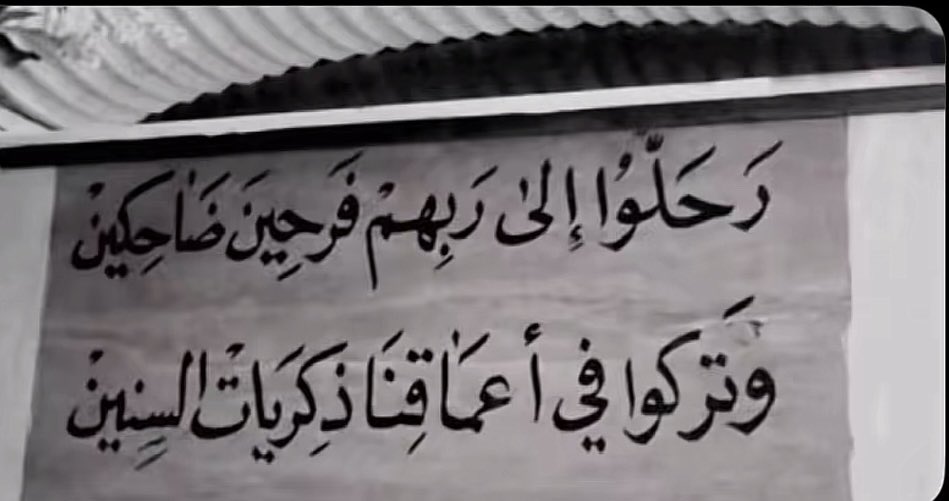 رَحَلّوُا إِلىٰ رَبِهِمْ فَرَحِينَ ضَاحِكِينْ
وَتَركوا في أعمَاقِنَا ذِكرَياتْ السِنِينْ